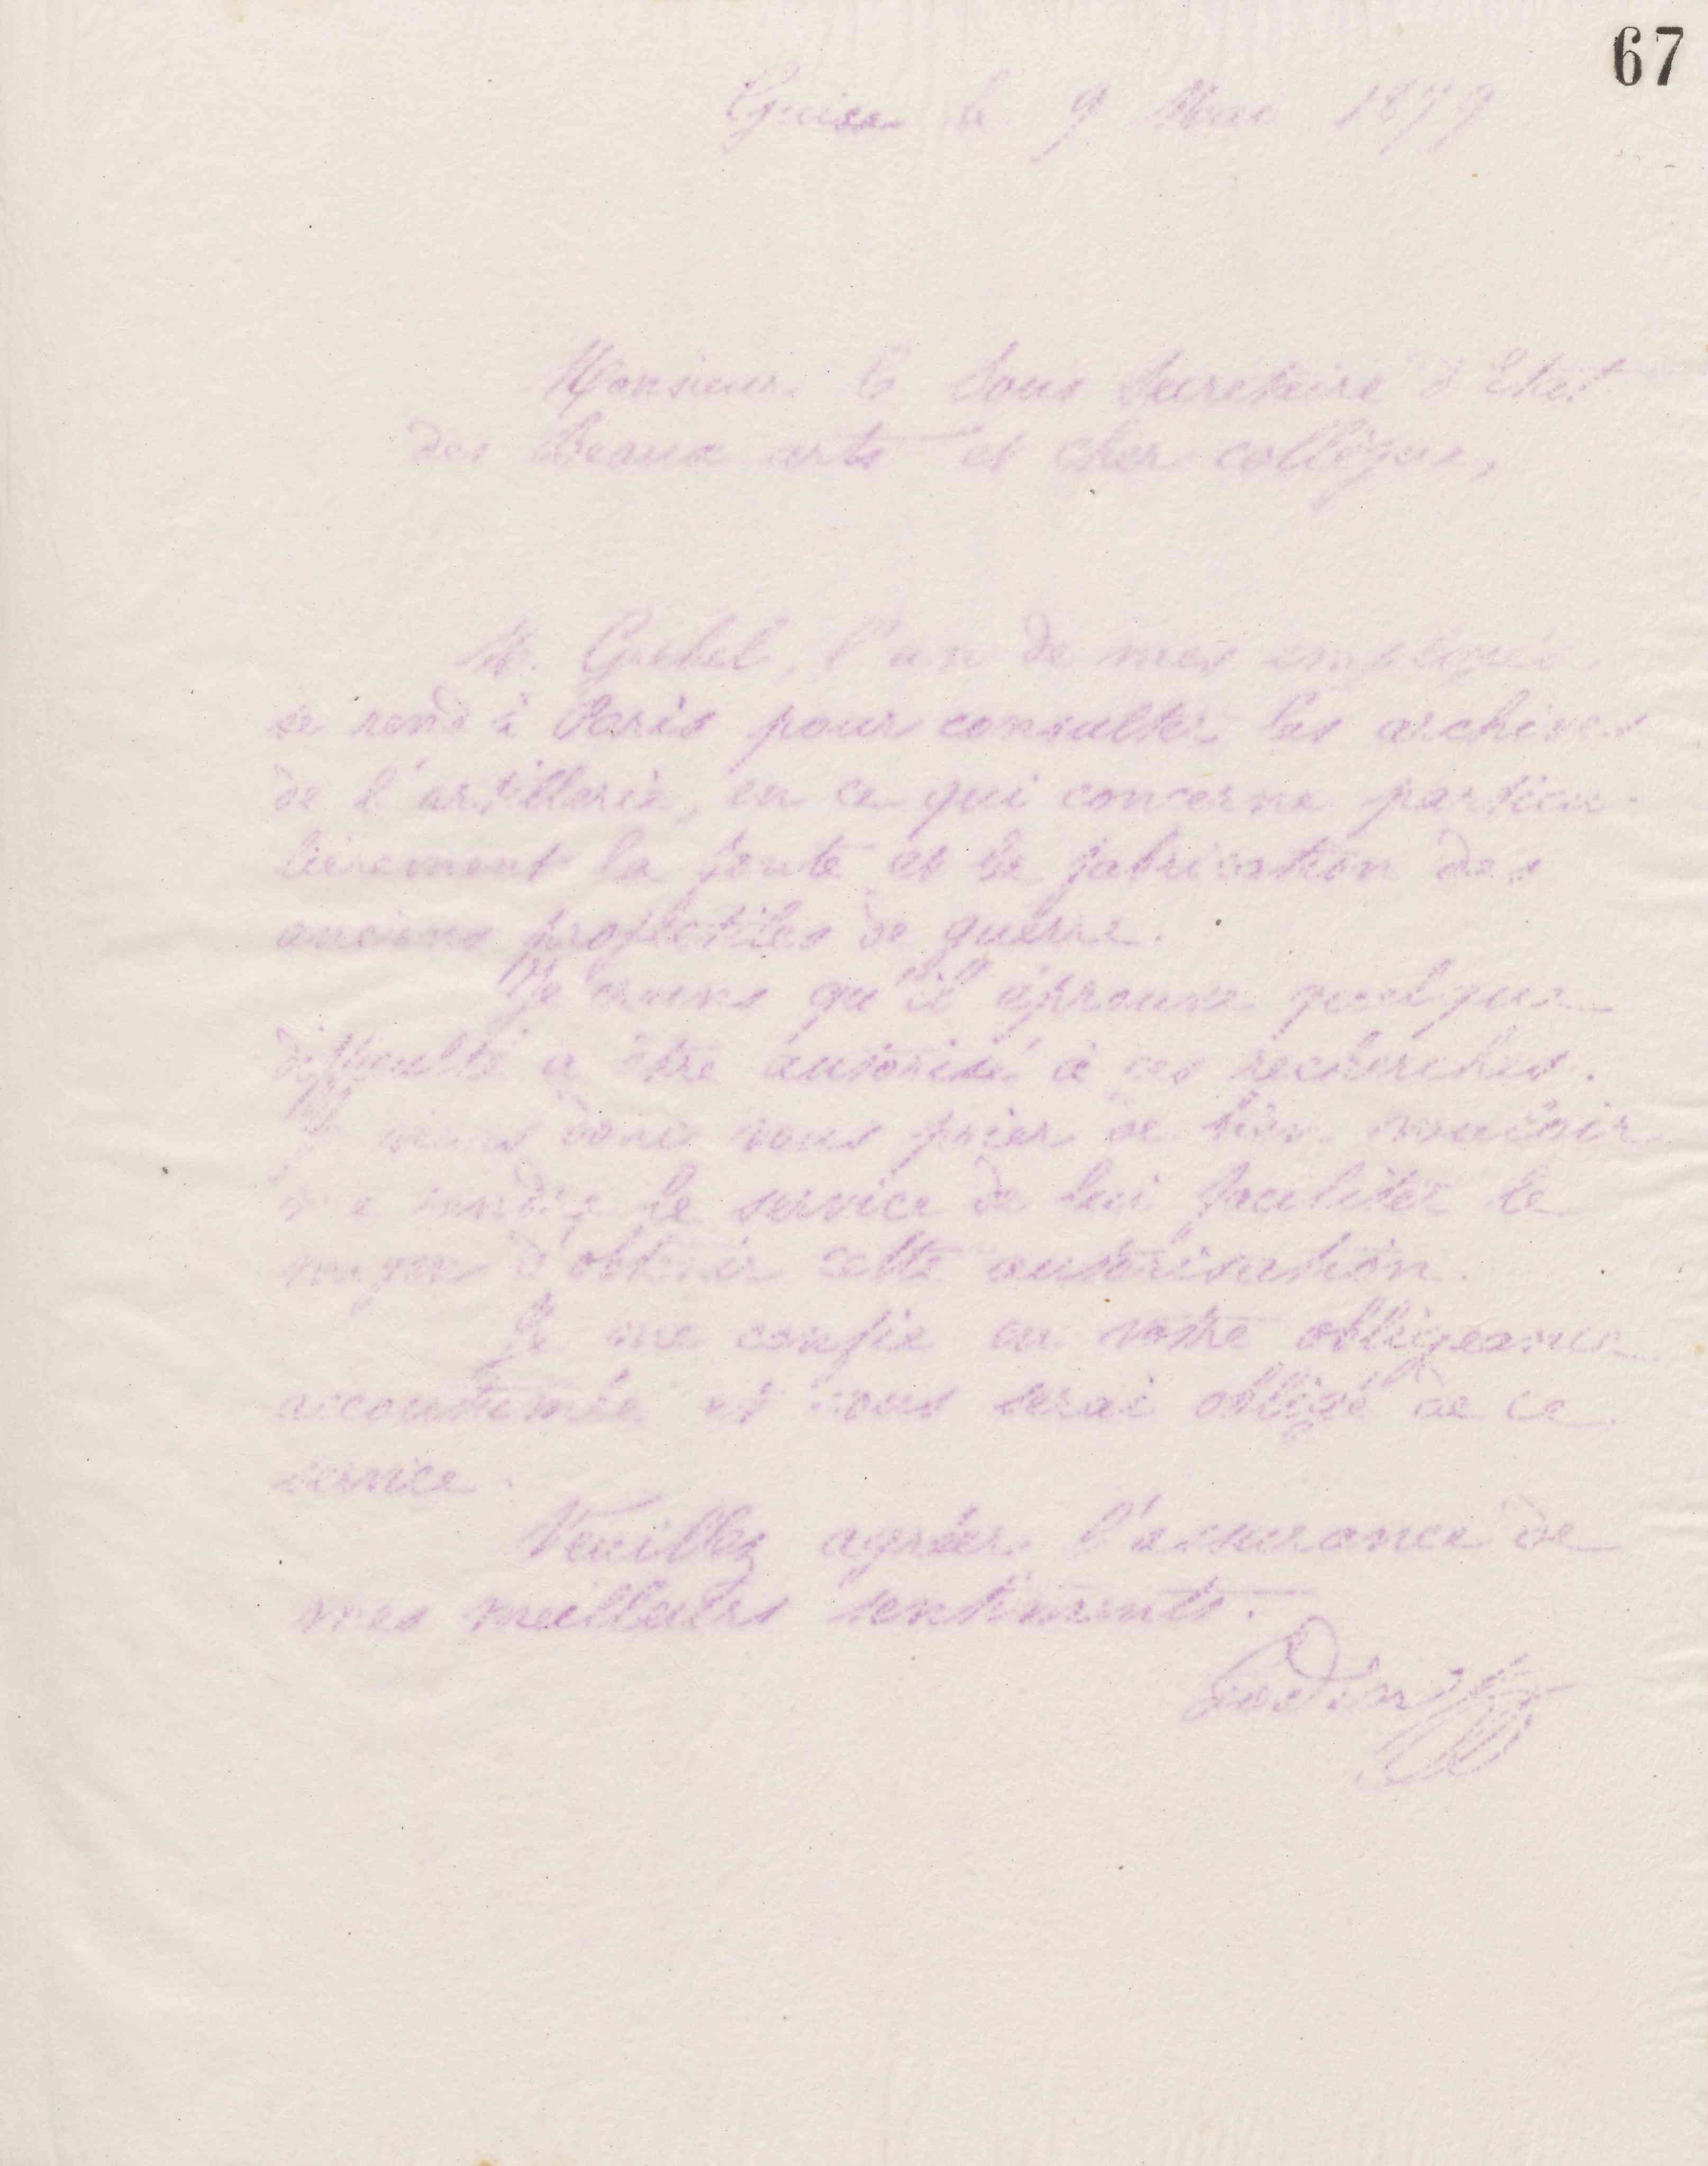 67
Guise le 9 Mai 1879
Monsieur le Sous Secrétaire d'Etat
des Beaux arts et cher collègue,
M. Grebel, l'un de mes employés
se rend à Paris pour consulter les archives
de l'artillerie, en ce qui concerne particu-
lièrement la fonte et la fabrication des
anciens projectiles de guerre.
Je crains qu'il éprouve quelque
difficulté a être autorisé à ces recherches.
Je viens donc vous prier de bien vouloir
me rendre le service de lui faciliter le
moyen d'obtenir cette autorisation.
Je me confie en votre obligeance
accoutumée et vous serai obligé de ce
service.
Veuillez agréer l'assurance de
mes meilleurs sentiments.
Godin